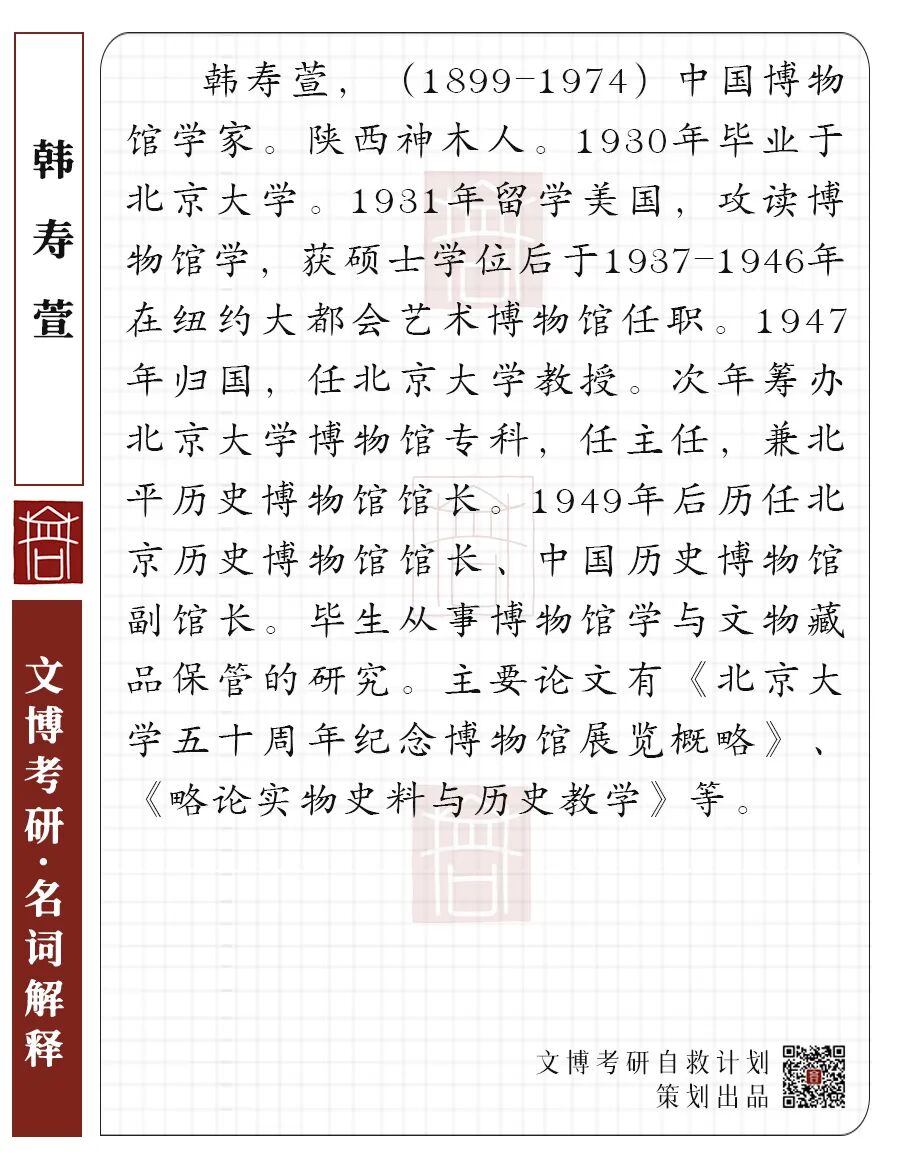 韩寿萱
文博考研·名词解释
韩寿萱，（1899-1974）中国博物
馆学家。陕西神木人。1930年毕业于
北京大学。1931年留学美国，攻读博
物馆学，获硕士学位后于1937-1946年
在纽约大都会艺术博物馆任职。1947
年归国，任北京大学教授。次年筹办
北京大学博物馆专科，任主任，兼北
平历史博物馆馆长。1949年后历任北
京历史博物馆馆长、中国历史博物馆
副馆长。毕生从事博物馆学与文物藏
品保管的研究。主要论文有《北京大
学五十周年纪念博物馆展览概略》、
《略论实物史料与历史教学》等。
文博考研自救计划
策划出品